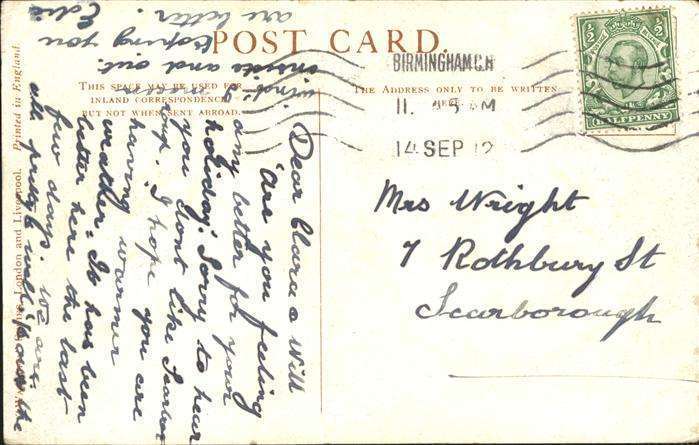 POST CARD.
THIS SPACE MAY BE USED FOR
INLAND CORRESPONDENCE
BUT NOT WHEN SENT ABROAD.
THE ADDRESS ONLY TO BE WRITTEN
HERE
BIRMINGHAM
11. 45 AM
14 SEP 12
HALFPENNY
Mrs Wright
7 Rothbury St
Scarborough
Dear Clara & Will
Are you feeling
any better for your
holiday. Sorry to hear
you dont like Scarbor
I hope you are
having warmer
weather. It has been
better here the last
few days. We are
all pretty well
the
wind
inside and out.
Hoping you
are better. Edie
London and Liverpool. Printed in England.